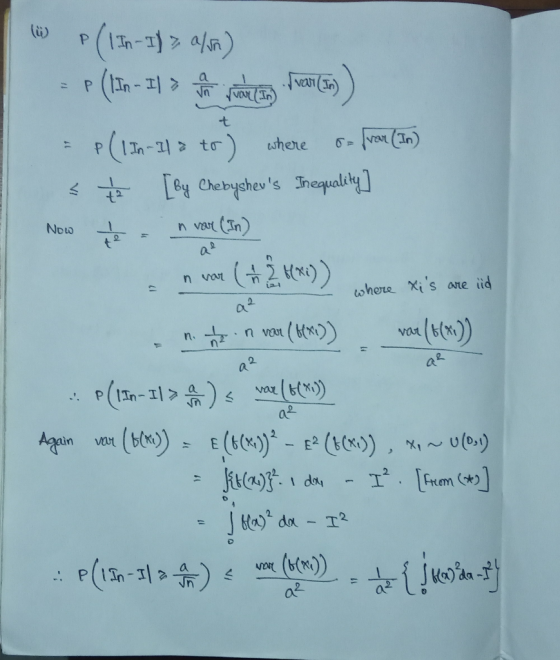 (ii) P(|In-I| ≥ a/√n)
= P(|In-I| ≥ a/√n · 1/√var(In) · √var(In))
t
= P(|In-I| ≥ tσ) where σ = √var(In)
≤ 1/t² [By Chebyshev's Inequality]
Now 1/t² = n var(In) / a²
= n var(1/n Σ_{i=1}^{n} f(xi)) / a² where xi's are iid
= n · 1/n² · n var(f(x₁)) / a² = var(f(x₁)) / a²
∴ P(|In-I| ≥ a/√n) ≤ var(f(x₁)) / a²
Again var(f(x₁)) = E(f(x₁))² - E²(f(x₁)), x₁ ~ U(0,1)
= ∫₀¹ {f(x₁)}² · 1 dx₁ - I² · [From (*)]
= ∫₀¹ f(x)² dx - I²
∴ P(|In-I| ≥ a/√n) ≤ var(f(x₁)) / a² = 1/a² { ∫₀¹ f(x)² dx - I² }